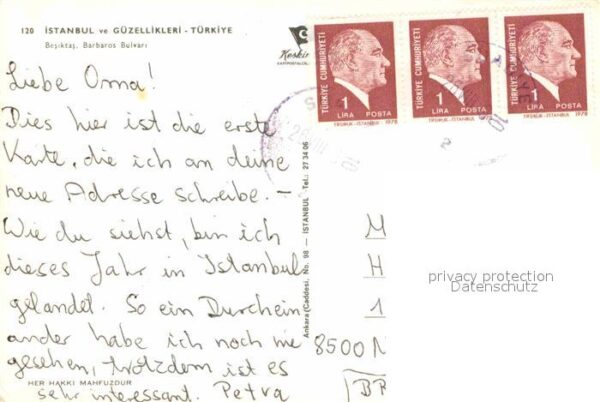 120 İSTANBUL ve GÜZELLİKLERİ - TÜRKİYE
Beşiktaş, Barbaros Bulvarı
Keskin
Liebe Oma!
Dies hier ist die erste
Karte, die ich an deine
neue Adresse schreibe. -
Wie du siehst, bin ich
dieses Jahr in Istanbul
gelandet. So ein Durchein
ander habe ich noch nie
gesehen, trotzdem ist es
sehr interessant. Petra
HER HAKKI MAHFUZDUR
Ankara Caddesi, No. 98 — İSTANBUL Tel.: 27 34 06
TÜRKİYE CUMHURİYETİ
1
LİRA POSTA
TİFDRUK-İSTANBUL 1978
TÜRKİYE CUMHURİYETİ
1
LİRA POSTA
TİFDRUK-İSTANBUL 1978
TÜRKİYE CUMHURİYETİ
1
LİRA POSTA
TİFDRUK-İSTANBUL 1978
M
H
1
8500 N
BR
privacy protection
Datenschutz